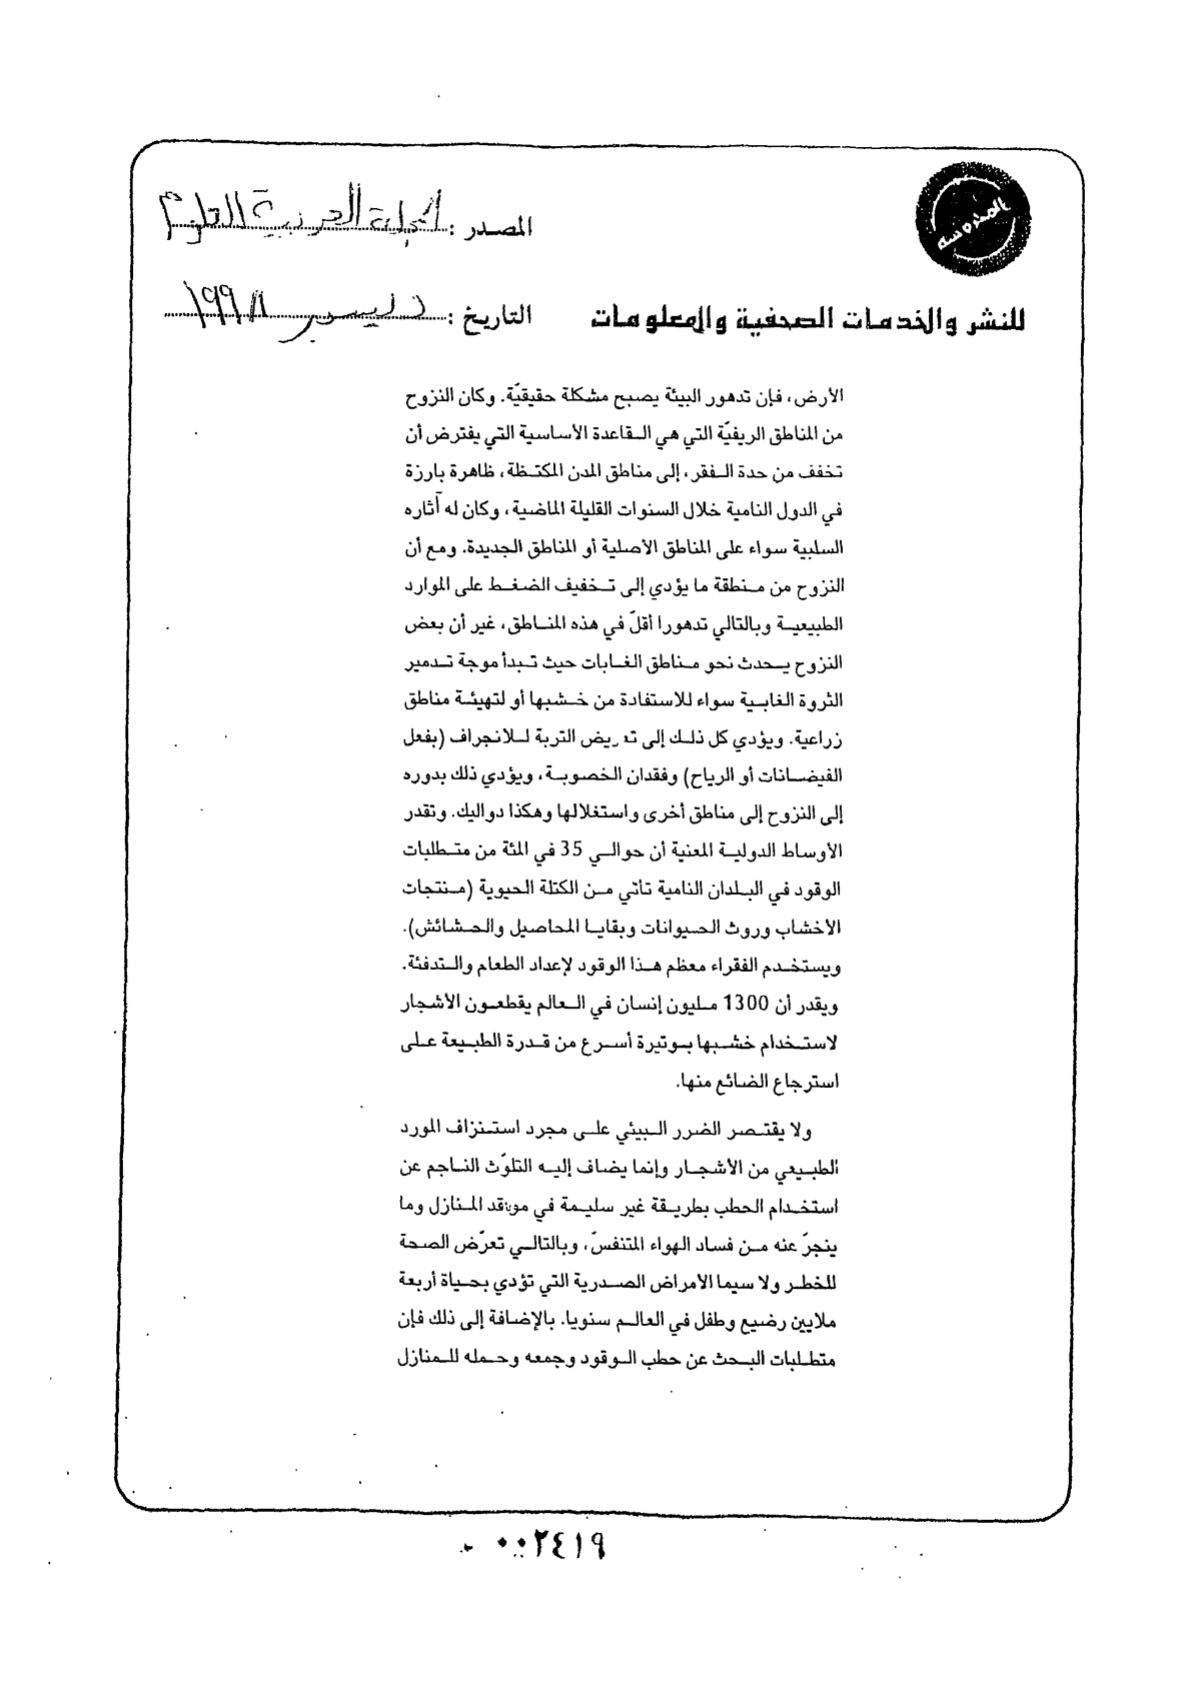 المحروسة
المصدر : المجلة العربية للعلوم
للنشر والخدمات الصحفية والمعلومات
التاريخ : ديسمبر ١٩٩٨
الأرض، فإن تدهور البيئة يصبح مشكلة حقيقيّة. وكان النزوح
من المناطق الريفيّة التي هي القاعدة الأساسية التي يفترض أن
تخفف من حدة الفقر، إلى مناطق المدن المكتظة، ظاهرة بارزة
في الدول النامية خلال السنوات القليلة الماضية، وكان له آثاره
السلبية سواء على المناطق الأصلية أو المناطق الجديدة. ومع أن
النزوح من منطقة ما يؤدي إلى تخفيف الضغط على الموارد
الطبيعية وبالتالي تدهورا أقلّ في هذه المناطق، غير أن بعض
النزوح يحدث نحو مناطق الغابات حيث تبدأ موجة تدمير
الثروة الغابية سواء للاستفادة من خشبها أو لتهيئة مناطق
زراعية. ويؤدي كل ذلك إلى تعريض التربة للانجراف (بفعل
الفيضانات أو الرياح) وفقدان الخصوبة، ويؤدي ذلك بدوره
إلى النزوح إلى مناطق أخرى واستغلالها وهكذا دواليك. وتقدر
الأوساط الدولية المعنية أن حوالي 35 في المئة من متطلبات
الوقود في البلدان النامية تأتي من الكتلة الحيوية (منتجات
الأخشاب وروث الحيوانات وبقايا المحاصيل والحشائش).
ويستخدم الفقراء معظم هذا الوقود لإعداد الطعام والتدفئة.
ويقدر أن 1300 مليون إنسان في العالم يقطعون الأشجار
لاستخدام خشبها بوتيرة أسرع من قدرة الطبيعة على
استرجاع الضائع منها.
ولا يقتصر الضرر البيئي على مجرد استنزاف المورد
الطبيعي من الأشجار وإنما يضاف إليه التلوّث الناجم عن
استخدام الحطب بطريقة غير سليمة في مواقد المنازل وما
ينجرّ عنه من فساد الهواء المتنفسّ، وبالتالي تعرّض الصحة
للخطر ولا سيما الأمراض الصدرية التي تؤدي بحياة أربعة
ملايين رضيع وطفل في العالم سنويا. بالإضافة إلى ذلك فإن
متطلبات البحث عن حطب الوقود وجمعه وحمله للمنازل
٠٠٢٤١٩